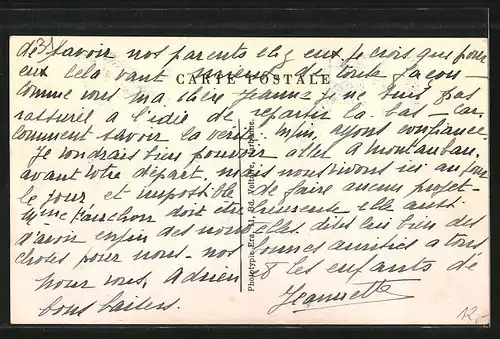 3)
de savoir nos parents chez eux je crois que pour
eux cela vaut de toute façon -
CARTE POSTALE
comme vous ma chère Jeanne je ne suis pas
rassurée à l'idée de repartir là-bas - Car
comment savoir la vérité. Enfin, ayons confiance.
Je voudrais bien pouvoir aller à Montauban
avant votre départ, mais nous vivons ici au jour
le jour et impossible de faire aucun projet -
Mme Fauchon doit être heureuse elle aussi
d'avoir enfin des nouvelles. dites lui bien des
choses pour nous - nos bonnes amitiés à tous
pour vous, Adrien et les enfants de
bons baisers.
Jeannette
Phototypie Bd. Voltaire, Narbonne.
12,-